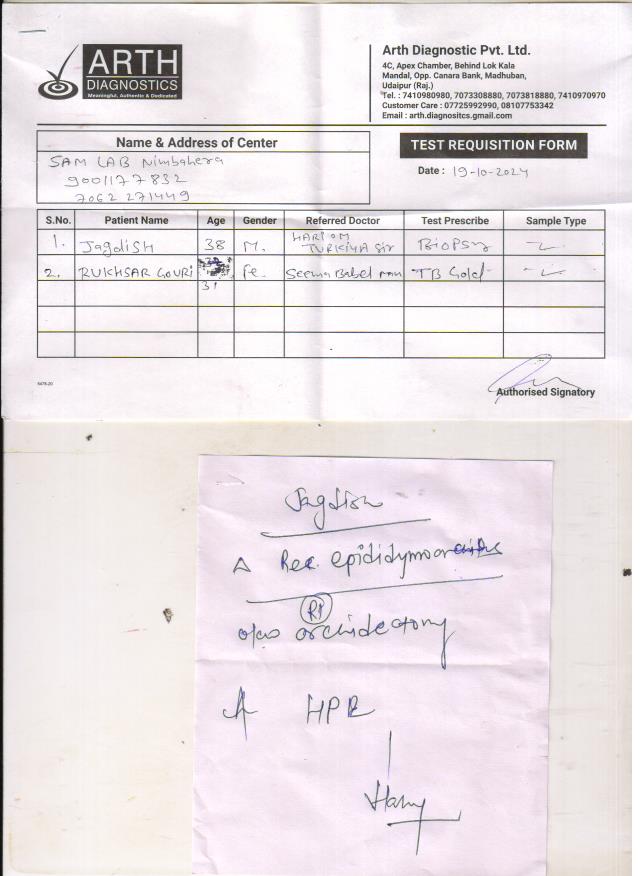 ARTH
DIAGNOSTICS
Meaningful, Authentic & Dedicated
Arth Diagnostic Pvt. Ltd.
4C, Apex Chamber, Behind Lok Kala
Mandal, Opp. Canara Bank, Madhuban,
Udaipur (Raj.)
Tel. : 7410980980, 7073308880, 7073818880, 7410970970
Customer Care : 07725992990, 08107753342
Email : arth.diagnositcs.gmail.com
Name & Address of Center
SAM LAB Nimbahera
9001177832
7062 271449
TEST REQUISITION FORM
Date : 19-10-2024
S.No. Patient Name Age Gender Referred Doctor Test Prescribe Sample Type
1. Jagdish 38 M. HARIOM TURKIYA Sir BIOPSY
2. RUKHSAR GOURI 31 Fe. Seema Babel mam TB Gold
5478-20
Authorised Signatory
Jagdish
Δ Rec. epididymoorchitis
Rt
o/c/o orchidectomy
HPE